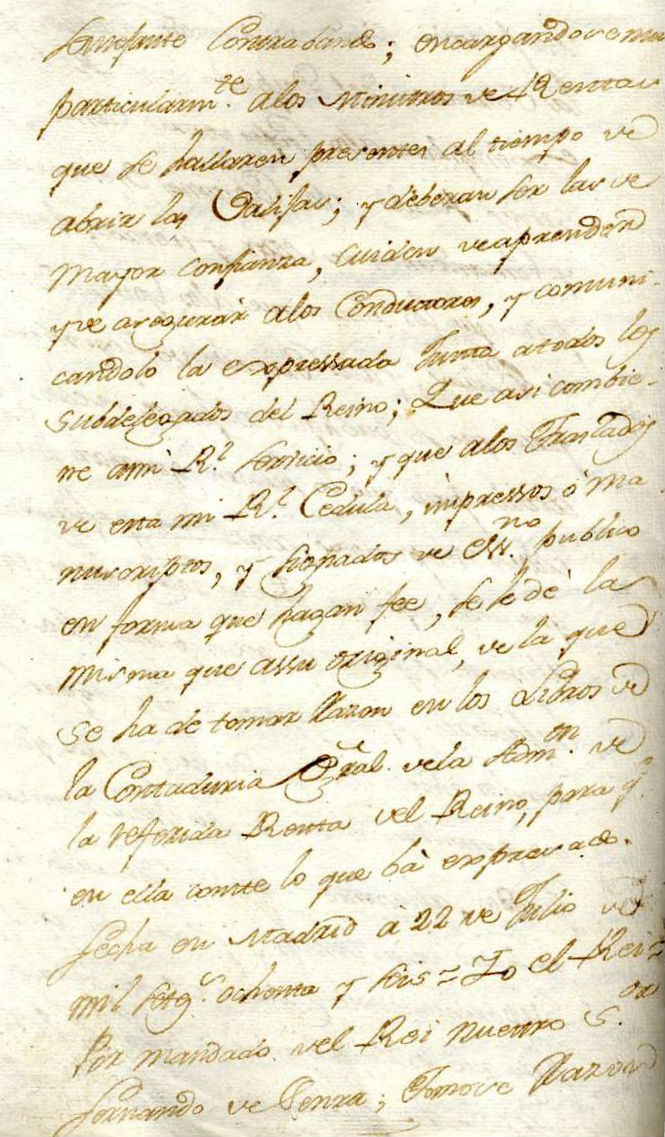 semejante Contrabando; encargandose mui
particularm.te a los Ministros de Rentas
que se hallaren presentes al tiempo de
abrir las Balijas; y deberan ser las de
mayor confianza, cuiden de aprender
y de asegurar a los Conductores, y comuni-
candolo la expressada Junta a todos los
Subdelegados del Reino; Que asi combie-
ne a mi R.l servicio; y que a los Traslados
de esta mi R.l Cedula, impressos ó ma
nuscriptos, y signados de Ess.no publico
en forma que hagan fee, se le dè la
misma que assu original, de la que
se ha de tomar Razon en los Libros de
la Contaduria Gral. de la Adm.on de
la referida Renta del Reino, para q.e
en ella conste lo que bà expresado.
fecha en Madrid a 22 de Julio de
mil setez.s ochenta y seis = Yo el Rei =
Por mandado del Rei nuestro S.or
Fernando de Senra; Tomose Razon